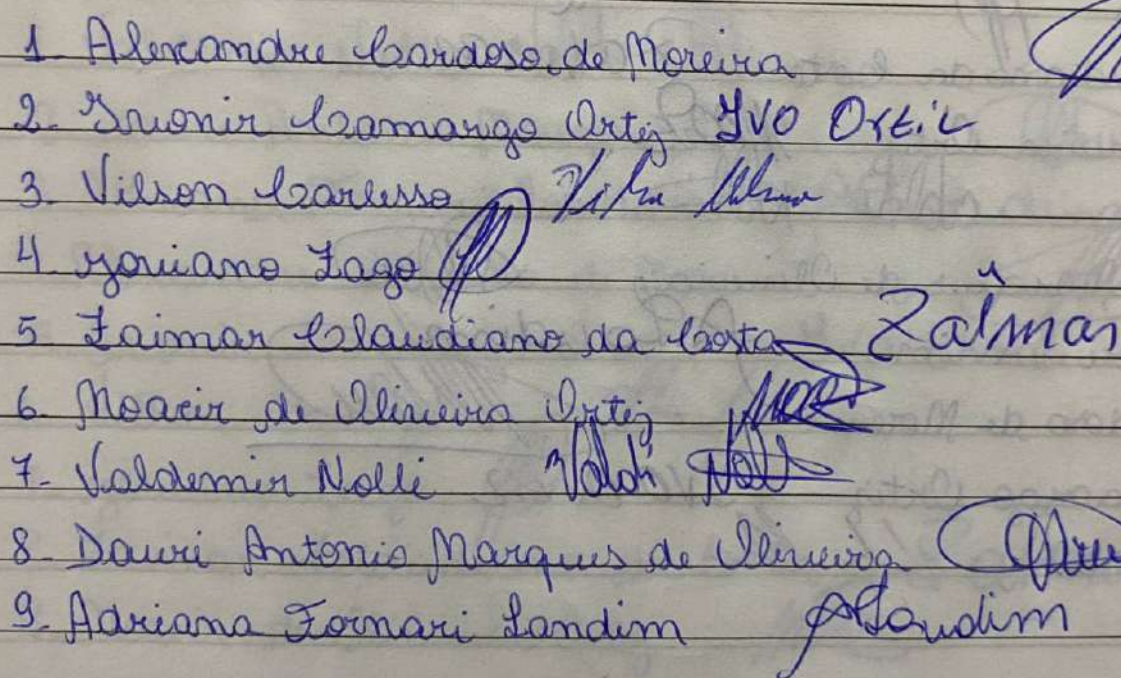 1 Alexandre Cardoso de Moreira
2. Ivonir Camargo Ortiz Ivo Ortiz
3. Vilson Carlesso
4 Joviano Lago
5 Zaimar Claudiano da Costa Zaimar
6. Moacir de Oliveira Ortiz MOR
7- Valdemir Nolli Valdi Nolli
8- Dauri Antonio Marques de Oliveira
9. Adriana Fornari Landim ALandim